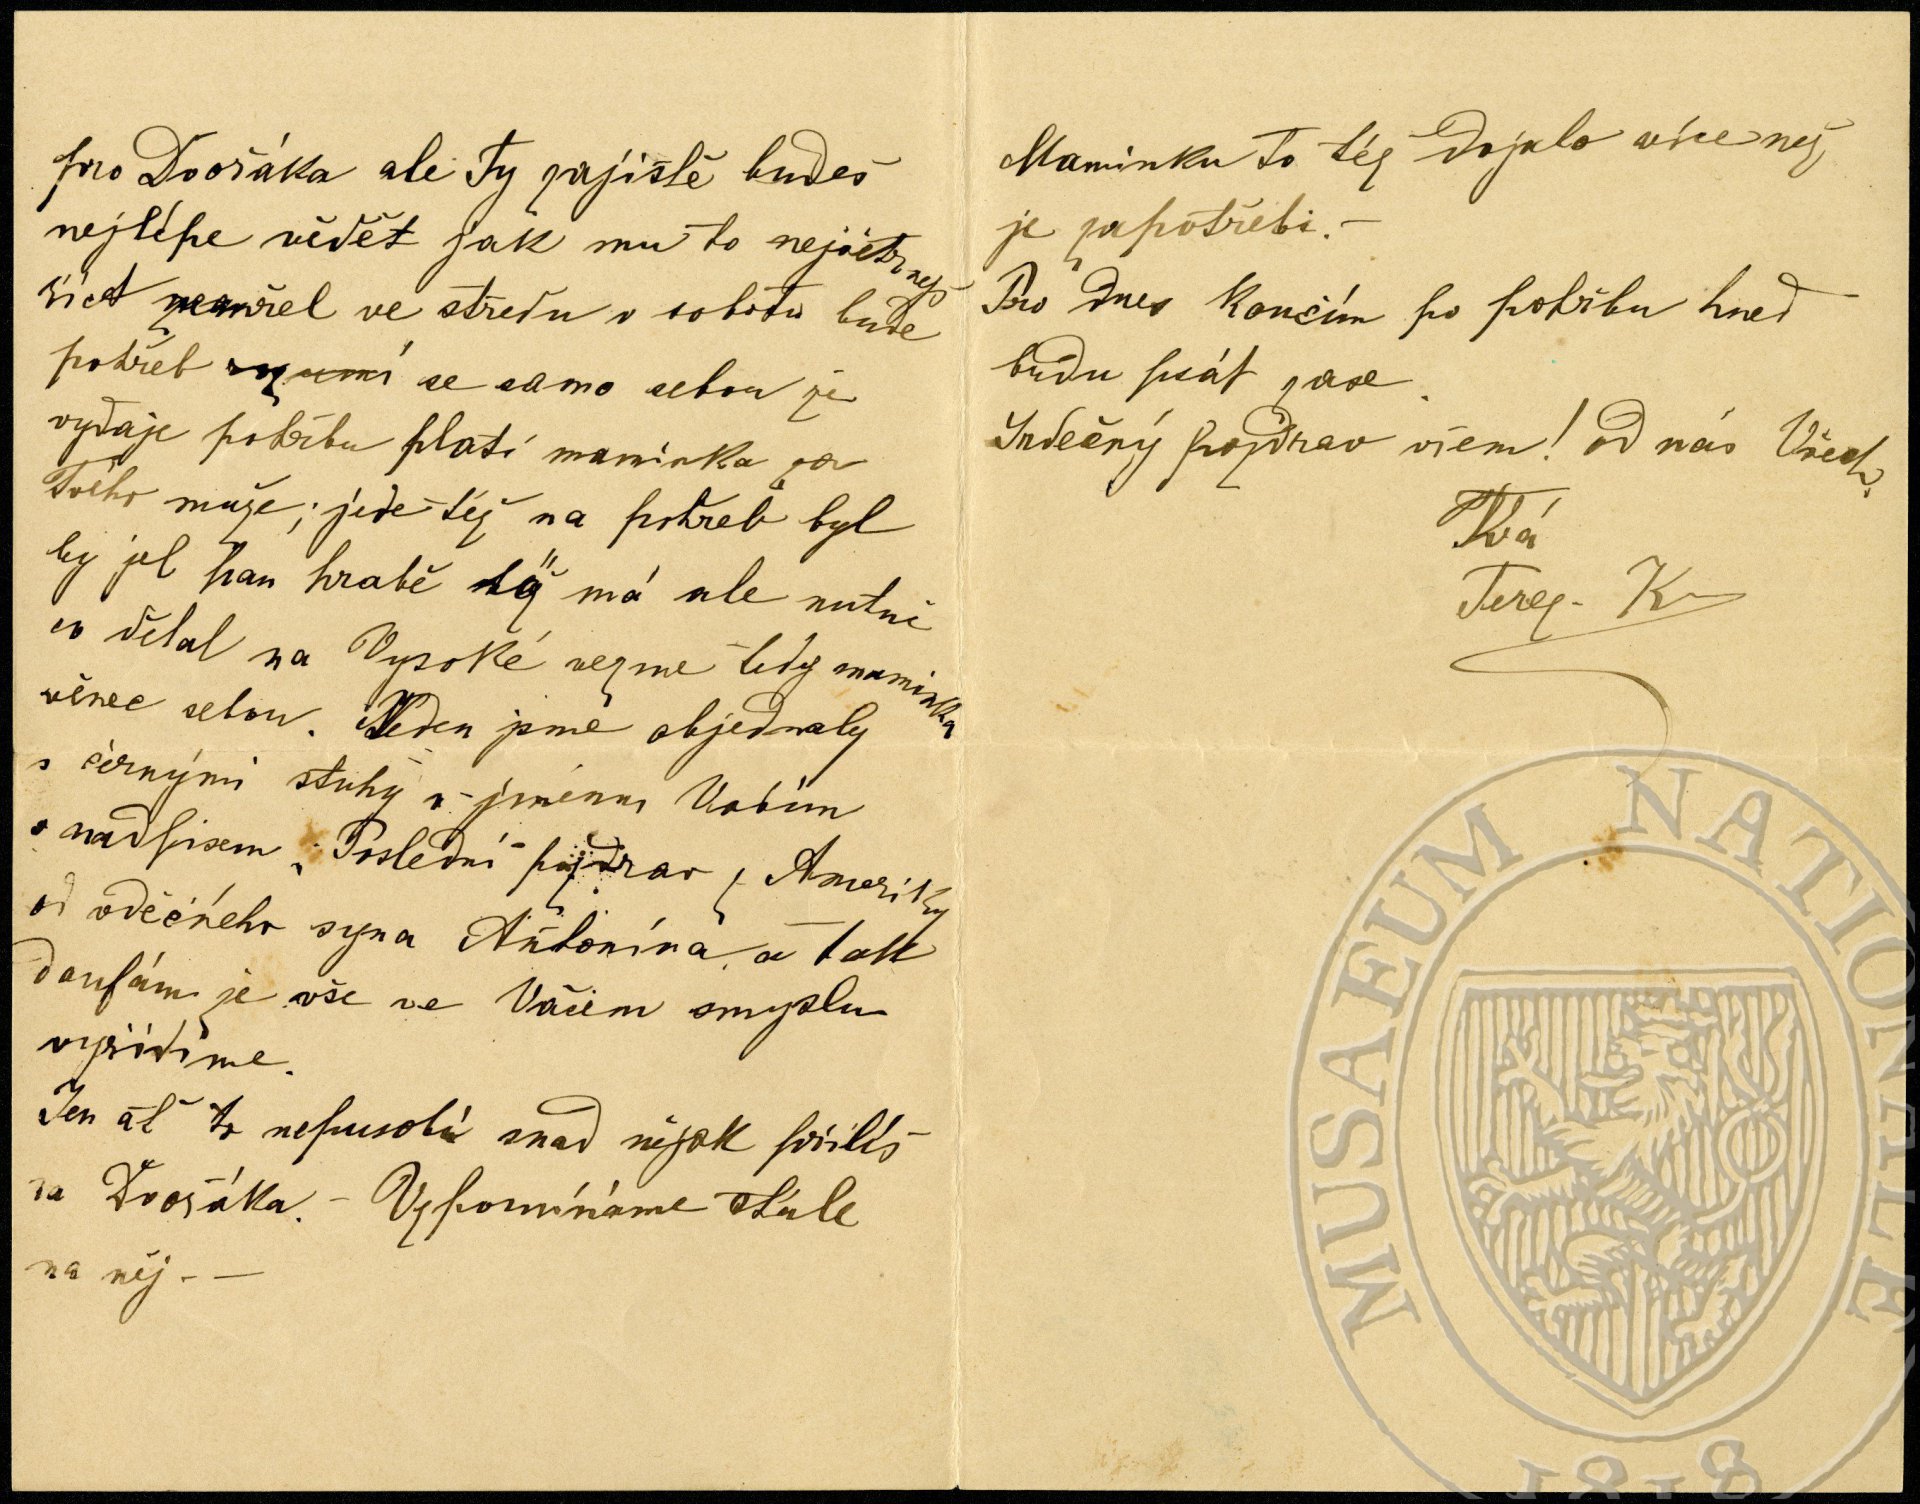 pro Dvořáka ale Ty zajistě budeš
nejlépe vědět jak mu to nejšetrněj
říct zemřel ve středu v sobotu bude
pohřeb rozumí se samo sebou že
výdaje pohřbu platí maminka za
Tvého muže; jede též na pohřeb byl
by jel pan hrabě též má ale nutně
co dělat na Vysoké vezme tedy maminka
věnec sebou. Jeden jsme objednaly
s černými stuhy v jménu Vaším
s nadpisem „Poslední pozdrav z Ameriky
od vděčného syna Antonína a tak
doufám je vše ve Vašem smyslu
vyřídíme.
Jen ať to nepusobí snad nějak příliš
na Dvořáka. – Vzpomínáme stále
na něj – –
Maminku to též dojalo více než
je zapotřebí. –
Pro dnes končím po pohřbu hned
budu psát zase.
Srdečný pozdrav všem! od nás Všech.
Tvá
Terez. K
MUSAEUM NATIONALE
1818